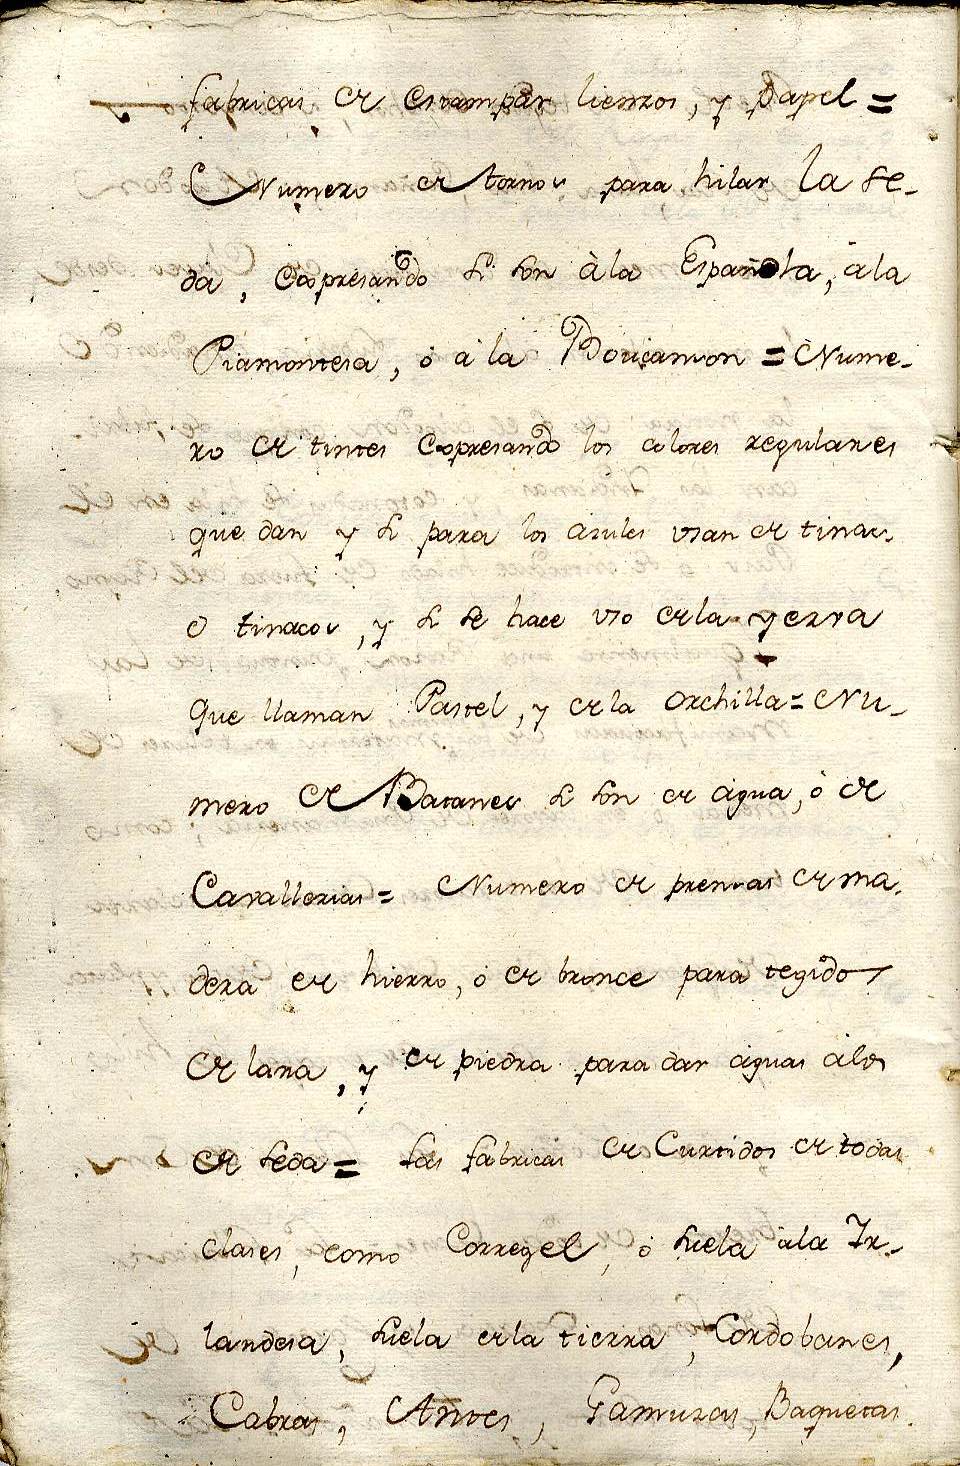 fabricas de estampar lienzos, y Papel =
Numero de tornos para hilar la se-
da, expresando si son à la Española, à la
Piamontesa, ó à la Boucanson = Nume-
ro de tintes expresando los colores regulares
que dan y si para los azules usan de tinas
o tinacos, y si se hace uso de la yerva
que llaman Pastel, y de la orchilla = Nu-
mero de Batanes si son de agua, ó de
Cavallerias = Numero de prensas de ma-
dera de hierro, ó de bronce para tegidos
de lana, y de piedra para dar aguas à los
de seda = Las fabricas de Curtidos de todas
clases, como Corregel, ó suela à la Ir-
landesa, suela de la tierra, Cordobanes,
Cabras, Antes, Gamuzas, Baquetas.